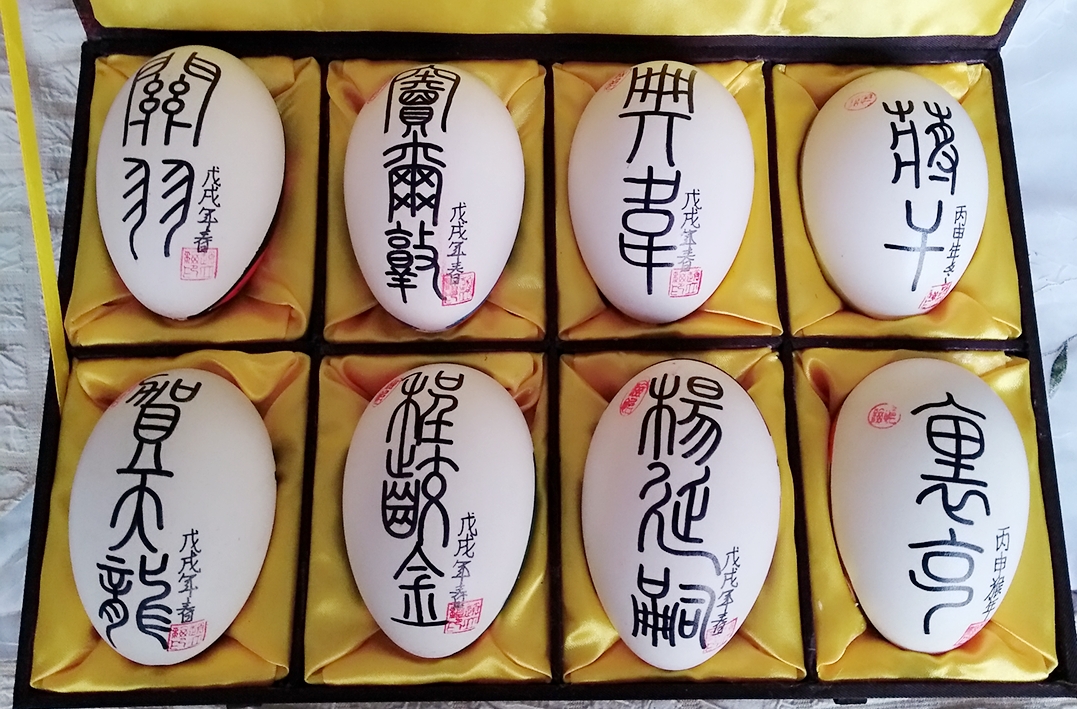 關羽
戊戌年春
竇爾敦
戊戌年春
典韋
戊戌年春
蔣干
丙申年
賀天龍
戊戌年春
程齩金
戊戌年春
楊延嗣
戊戌年春
裏亨
丙申猴年